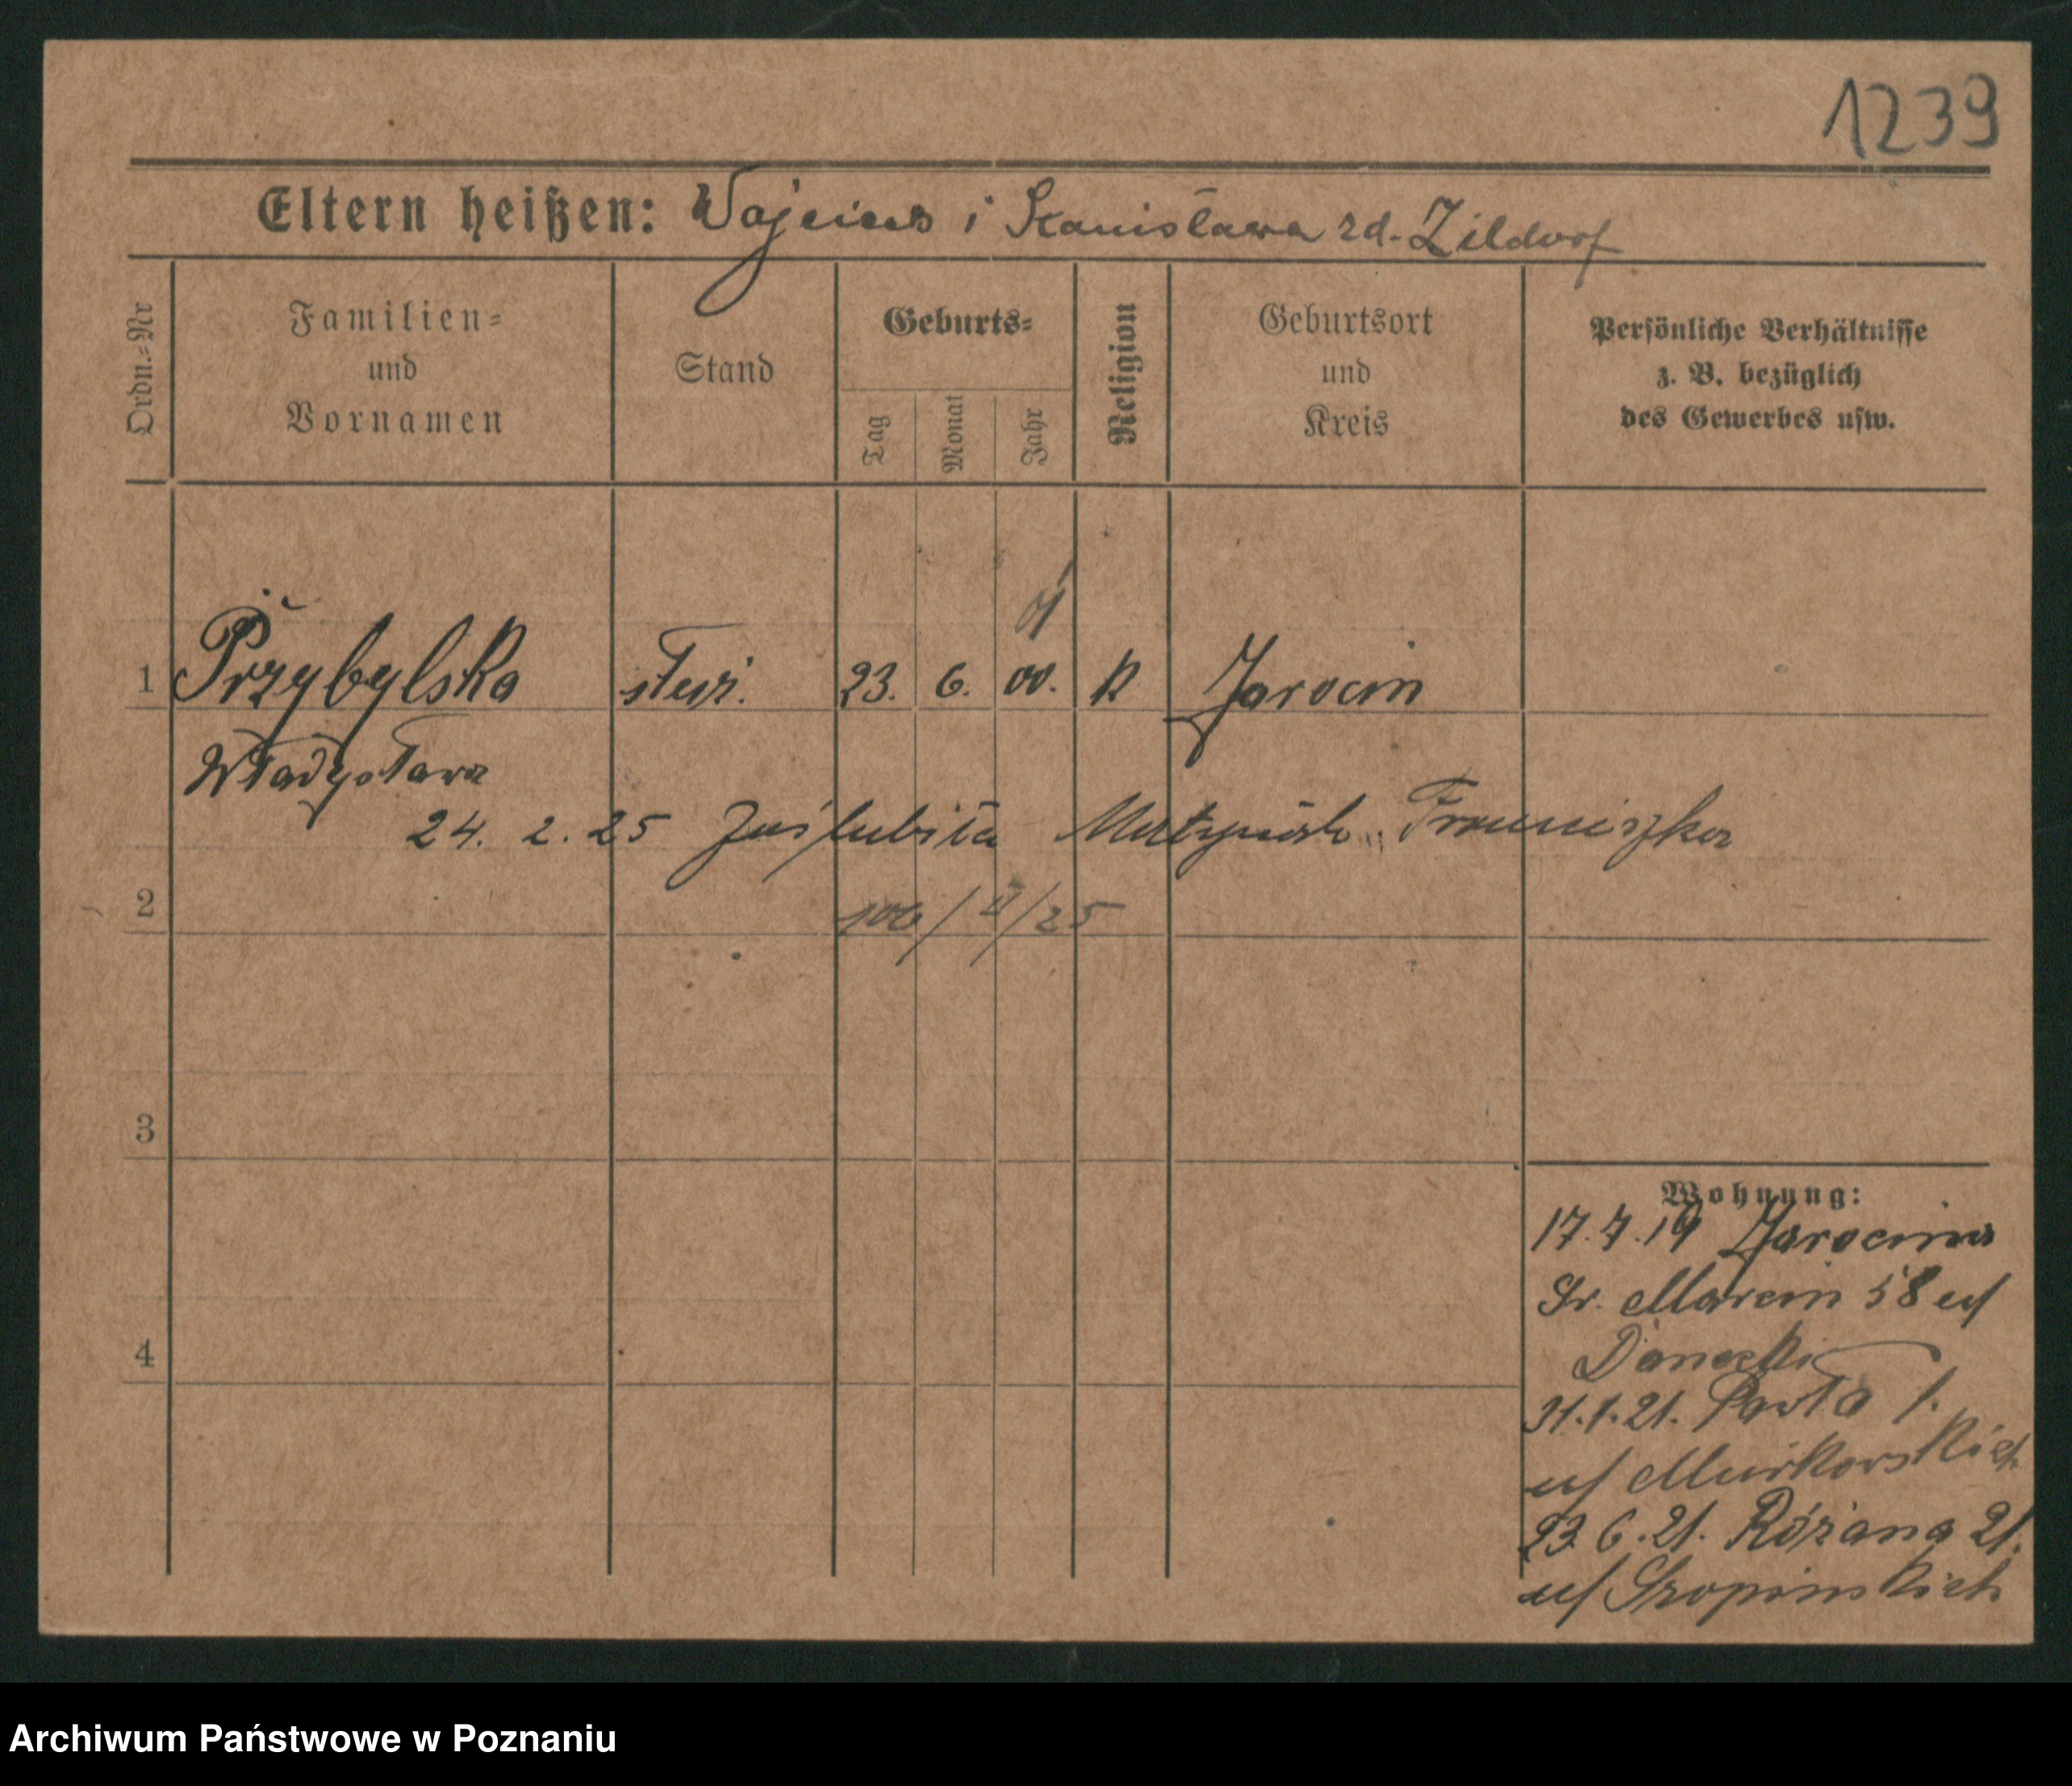 1239
Eltern heißen: Wojciech i Stanisława rd. Zildorf
Ordn.=Nr
Familien=
und
Vornamen
Stand
Geburts=
Tag
Monat
Jahr
Religion
Geburtsort
und
Kreis
Persönliche Verhältnisse
z. B. bezüglich
des Gewerbes usw.
1 Przybylska służ. 23. 6. 00. K Jarocin
Władysława
24. 2. 25 Franciszka
2
106/II/25
3
4
Wohnung:
17.7.19 Jarocina
Św. Marcin 58 u/
Danecki
31.1.21. 1.
u/
23.6.21. Różana 21.
u/
Archiwum Państwowe w Poznaniu